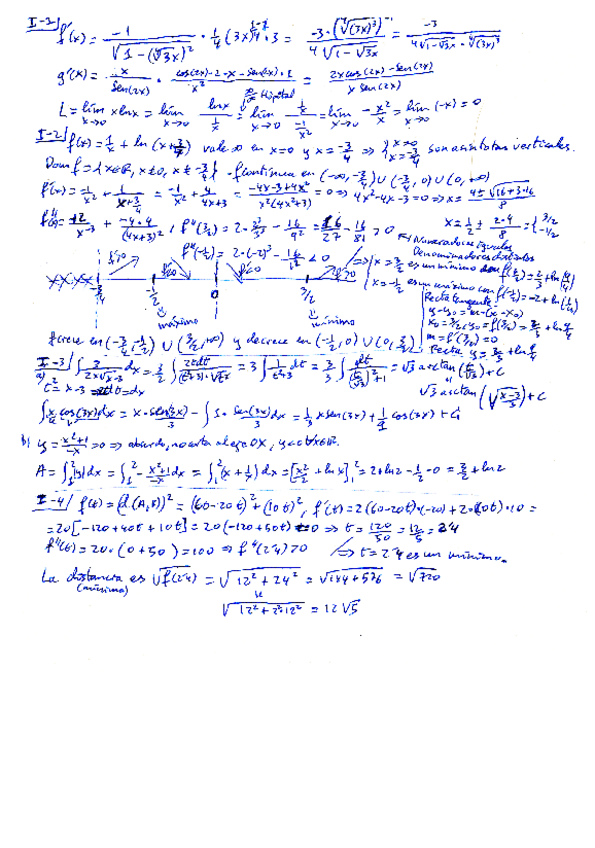 I-2) f'(x) = -1/√(1-(⁴√3x)²) · 1/4 (3x)^(1/4-1) · 3 = -3·(⁴√(3x)³)⁻¹ / 4√(1-√3x) = -3 / 4√(1-√3x) · ⁴√(3x)³
g'(x) = x/sen(2x) · cos(2x)·2·x - sen(2x)·1 / x² = 2x cos(2x) - sen(2x) / x sen(2x)
L = lím x→0 x ln x = lím x→0 ln x / 1/x = ∞/∞ Hôpital lím x→0 1/x / -1/x² = lím x→0 -x²/x = lím x→0 (-x) = 0
I-2) f(x) = 1/x + ln(x+3/4) vale ∞ en x=0 y x=-3/4 ⇒ { x=0 x=-3/4 son asíntotas verticales.
Dom f = {x∈R, x≠0, x≠-3/4} f continua en (-∞,-3/4) ∪ (-3/4, 0) ∪ (0, ∞)
f'(x) = -1/x² + 1/(x+3/4) = -1/x² + 4/(4x+3) = -4x-3+4x² / x²(4x+3) = 0 ⇒ 4x²-4x-3=0 ⇒ x = 4±√(16+3·16) / 8
f''(x) = +2/x³ + -4·4/(4x+3)², f''(3/2) = 2·2³/3³ - 16/9² = 16/27 - 16/81 > 0 x = 1/2 ± 2·4/8 = { 3/2 -1/2
Numeradores iguales
Denominadores distintos
f''(-1/2) = 2·(-2)³ - 16/1² < 0
f'>0 f'<0 f'<0 f'>0
⇒ { x = 3/2 es un mínimo con f(3/2) = 2/3 + ln(9/4)
x = -1/2 es un máximo con f(-1/2) = -2 + ln(1/4)
-3/4 -1/2 0 3/2
máximo mínimo
Recta tangente
y-y₀ = m·(x-x₀)
x₀ = 3/2, y₀ = f(3/2) = 2/3 + ln 9/4
m = f'(3/2) = 0
f crece en (-3/4, -1/2) ∪ (3/2, ∞) y decrece en (-1/2, 0) ∪ (0, 3/2) Recta y = 2/3 + ln 9/4
I-3) a) ∫ 3/(2x√(x-3)) dx = 3/2 ∫ 2t dt/(t²+3)·√t² = 3 ∫ 1/(t²+3) dt = 3/3 ∫ dt/((t/√3)²+1) = √3 arctan(t/√3) + C
t² = x-3 ⇒ 2t dt = dx
√3 arctan(√(x-3)/3) + C
∫ x cos(3x) dx = x · sen(3x)/3 - ∫ 1 · sen(3x)/3 dx = 1/3 x sen(3x) + 1/9 cos(3x) + C
b) y = x²+1/-x = 0 ⇒ absurdo, no corta al eje OX, y<0
A = ∫₁² |y| dx = ∫₁² - x²+1/-x dx = ∫₁² (x + 1/x) dx = [x²/2 + ln x]₁² = 2 + ln 2 - 1/2 - 0 = 3/2 + ln 2
I-4) f(t) = (d(A,B))² = (60-20t)² + (10t)², f'(t) = 2(60-20t)·(-20) + 2·(10t)·10 =
= 20[-120+40t+10t] = 20(-120+50t) = 0 ⇒ t = 120/50 = 12/5 = 2'4
f''(t) = 20·(0+50) = 100 ⇒ f''(2'4) > 0 ⇒ t = 2'4 es un mínimo.
La distancia es √f(2'4) = √(12²+24²) = √(144+576) = √720
(mínima)
√(12²+2²·12²) = 12√5